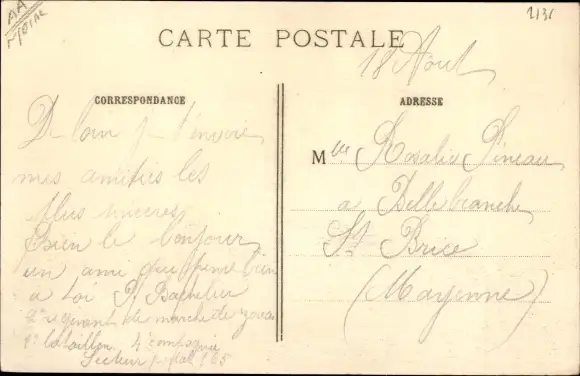 AA
2131
CARTE POSTALE
18 Août
CORRESPONDANCE
ADRESSE
De loin je t'envoie
mes amitiés les
plus sincères
Bien le bonjour
un ami qui pense bien
a toi P. Bachelier
2e regiment de marche de
2e bataillon 4e compagnie
Secteur postal 165
Mlle Rosalie Pineau
a Bellebranche
St Brice
(Mayenne)